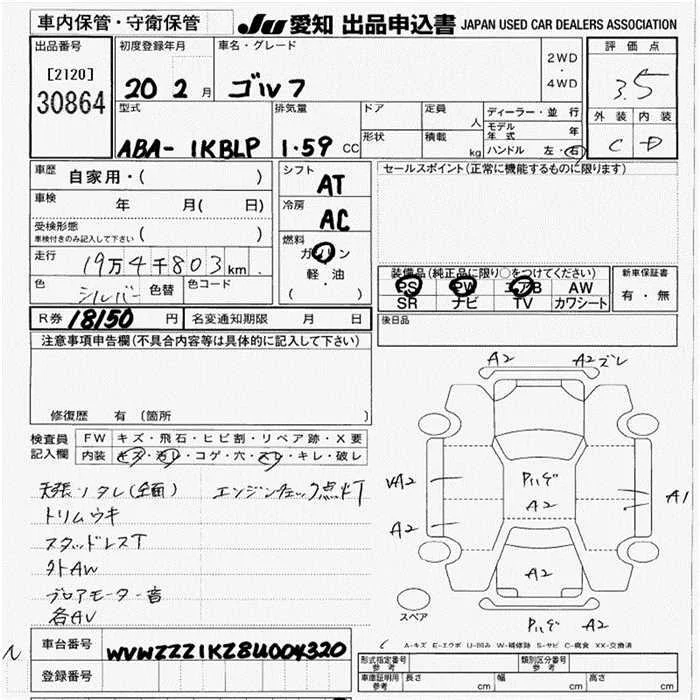 車内保管・守衛保管
JU 愛知 出品申込書 JAPAN USED CAR DEALERS ASSOCIATION
出品番号
[2120]
30864
初度登録年月
20 2 月
車名・グレード
ゴルフ
2WD
・
4WD
評価点
3.5
外装 内装
C D
型式
ABA- 1KBLP
排気量
1.59 CC
ドア
形状
定員
人
積載
kg
ディーラー・並行
モデル年式 年
ハンドル 左・右
車歴
自家用・( )
車検
年 月( 日)
受検形態
車検付きのみ記入して下さい ( )
走行
19万4千803km
色
シルバー
色替
色コード
シフト
AT
冷房
AC
燃料
ガソリン
軽・油
( )
セールスポイント(正常に機能するものに限ります)
装備品(純正品に限り○をつけてください)
PS PW エアB AW
SR ナビ TV カワシート
新車保証書
有・無
R券 18150 円
名変通知期限 月 日
後日品
注意事項申告欄(不具合内容等は具体的に記入して下さい)
修復歴 有 [箇所 ]
検査員
記入欄
FW キズ・飛石・ヒビ割・リペア跡・X要
内装 キズ・汚レ・コゲ・穴・スレ・キレ・破レ
天張リタレ(全面)
エンジンチェック点灯
トリムウキ
スタッドレスT
外AW
ブロアモーター音
各AV
A2 A2 ズレ
VA2
A2
A2
A1
A2
A2
スペア
A-キズ E-エクボ U-凹み W-補修跡 S-サビ C-腐食 XX-交換済
車台番号
WVWZZZ1KZ8U004320
登録番号
型式指定番号
参考
類別区分番号
参考
車庫証明用
参考
長さ cm
幅 cm
高さ cm